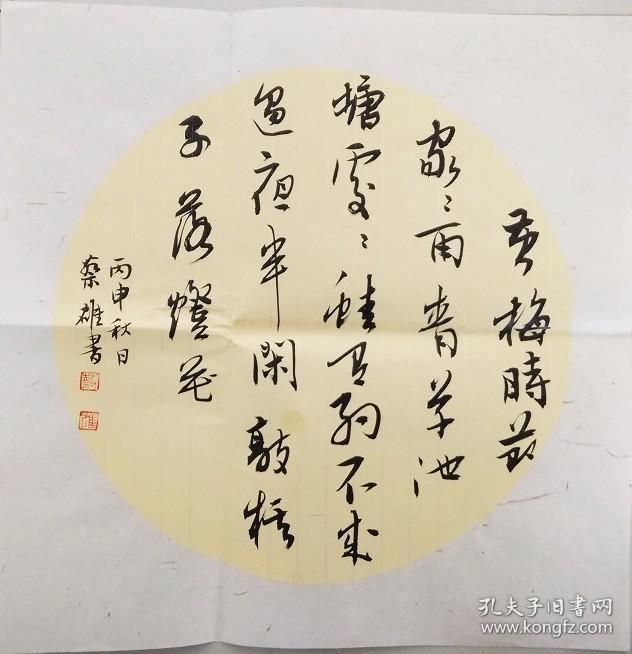 黄梅時節
家〻雨青草池
塘處〻蛙有約不來
過夜半閑敲棋
子落燈花
丙申秋日
蔡雄書
孔夫子旧书网
www.kongfz.com